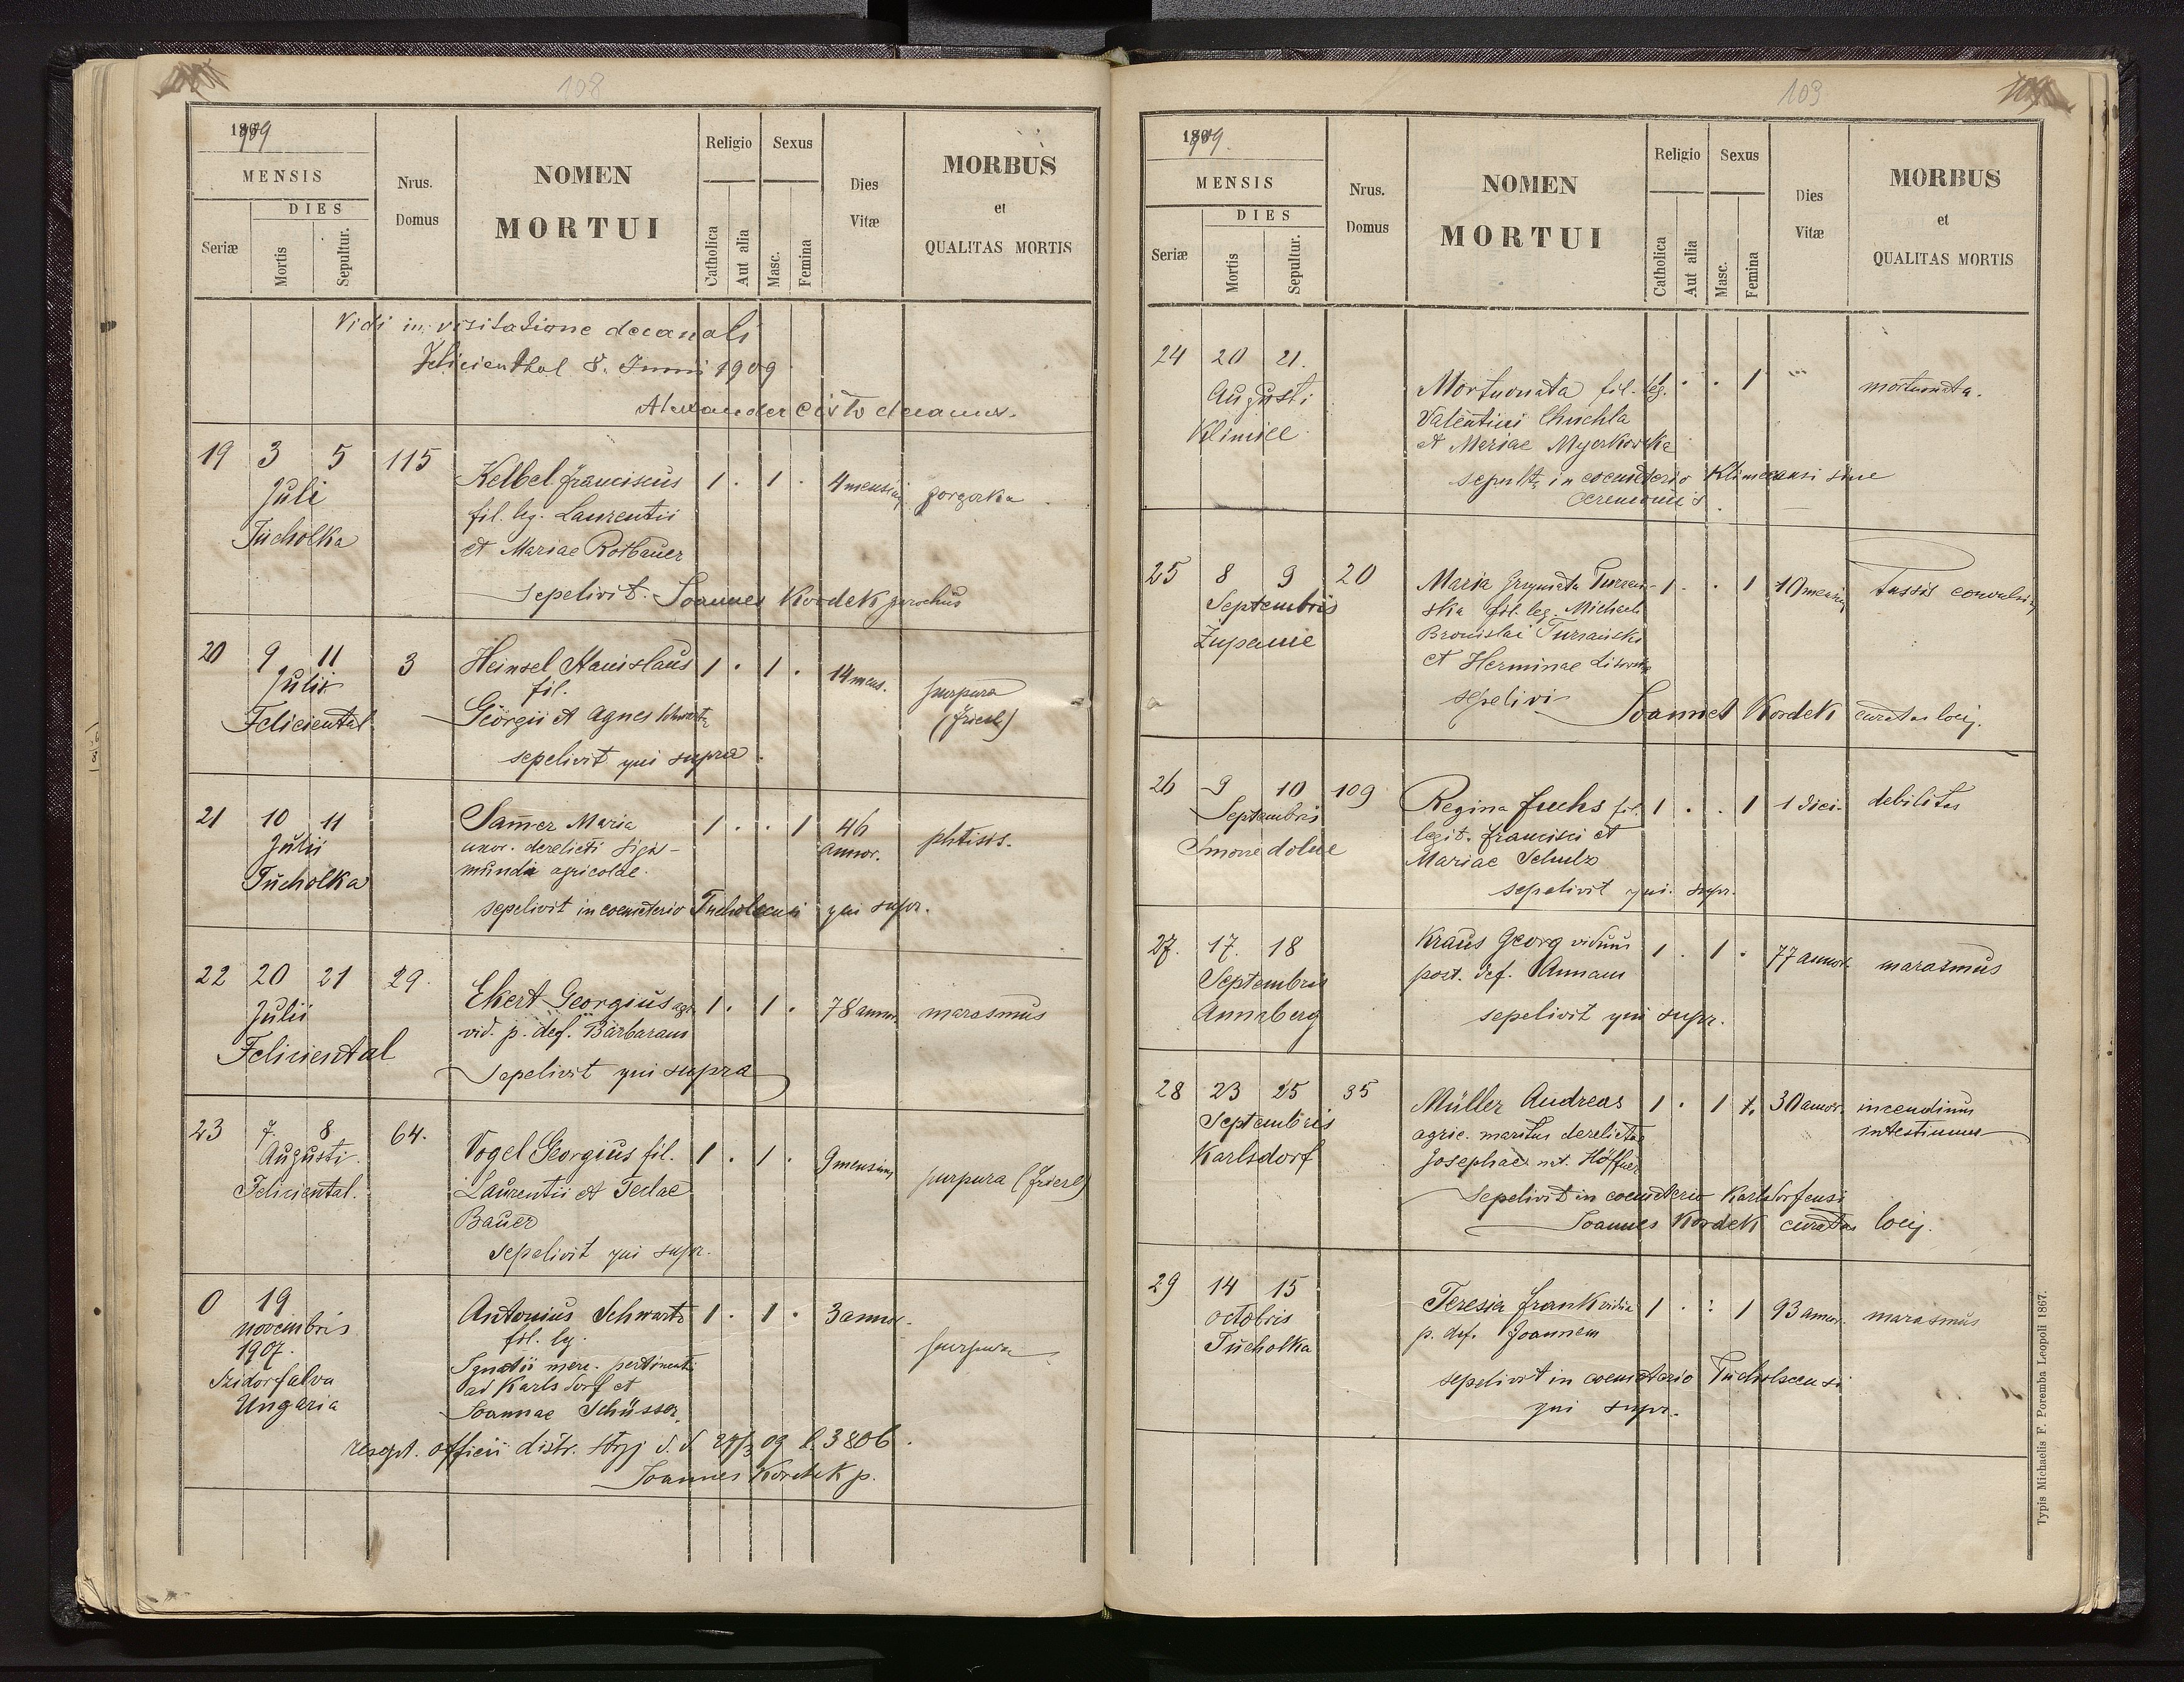 108
1909
MENSIS
DIES
Seriæ
Mortis
Sepultur.
Nrus.
Domus
NOMEN
MORTUI
Religio
Sexus
Catholica
Aut alia
Masc.
Femina
Dies
Vitæ
MORBUS
et
QUALITAS MORTIS
Vidi in visitatione decanali
Felicienthal 8. Junii 1909
Alexander decanus.
19 3 5 115
Juli
Tucholka
Kelbel Franciscus 1 . 1 . 4 mensium
fil. leg. Laurentii
et Mariae Rotbauer
sepelivit Joannes Kordek parochus
20 9 11 3
Julii
Feliciental
Heinsel Stanislaus 1 . 1 . 14 mens. purpura
fil.
Georgii et Agnes Schwartz (Friesl)
sepelivit qui supra
21 10 11
Julii
Tucholka
Samer Maria 1 . . 1 46 annor. phtisis.
uxor. derelicti Sigis-
mundi agricolae.
sepelivit in coemeterio Tucholcensi qui supr.
22 20 21 29.
Julii
Feliciental
Ekert Georgius agr. 1 . 1 . 78 annor. marasmus
vid. p. def. Barbaram
Sepelivit qui supra
23 7. 8 64.
Augusti
Feliciental.
Vogel Georgius fil. 1 . 1 . 9 mensium purpura (Friesl)
Laurentii et Teclae
Bauer
sepelivit qui supr.
0 19
novembris
1907.
Izidorfalva
Ungaria
Antonius Schwartz 1 . 1 . 3 annor. purpura
fil. lg.
Ignatii merc. pertinenti
ad Karlsdorf et
Joannae Schüsser
rescpt. officii distr. Stryj d.d. 27/3 09 l. 3806.
Joannes Kordek p.
103
1909.
MENSIS
DIES
Seriæ
Mortis
Sepultur.
Nrus.
Domus
NOMEN
MORTUI
Religio
Sexus
Catholica
Aut alia
Masc.
Femina
Dies
Vitæ
MORBUS
et
QUALITAS MORTIS
24 20 21.
Augusti
Klimiec
Mortuonata fil. leg. 1 . . 1 mortuonata.
Valentini Chuchla
et Mariae
sepulta in coemeterio Klimecensi sine
ceremoniis
25 8 9 20
Septembris
Zupanie
Maria Turzań- 1 . . 1 10 mensium tussis convulsiv
ska fil. leg. Michaeli
Bronislai Turzański
et Herminae
sepelivi Joannes Kordek curatus loci.
26 9 10 109
Septembris
Smorze dolne
Regina Fuchs fil. 1 . . 1 1 diei. debilitas
legit. Francisci et
Mariae Schulz
sepelivit qui supr.
27. 17. 18
Septembris
Annaberg
Kraus Georg viduus 1 . 1 . 77 annor. marasmus
post. def. Annam
sepelivit qui supr.
28 23 25 35
Septembris
Karlsdorf
Müller Andreas 1 . 1 . 30 annor. incendium
agric. maritus derelictae intestinum
Josephae nat. Höffner
Sepelivit in coemeterio Karlsdorfensi
Joannes Kordek curatus loci.
29 14 15
octobris
Tucholka
Teresia Frank vidua 1 . . 1 93 annor. marasmus
p. def. Joannem
sepelivit in coemeterio Tucholscensi
qui supr.
Typis Michaelis F. Poremba Leopoli 1867.